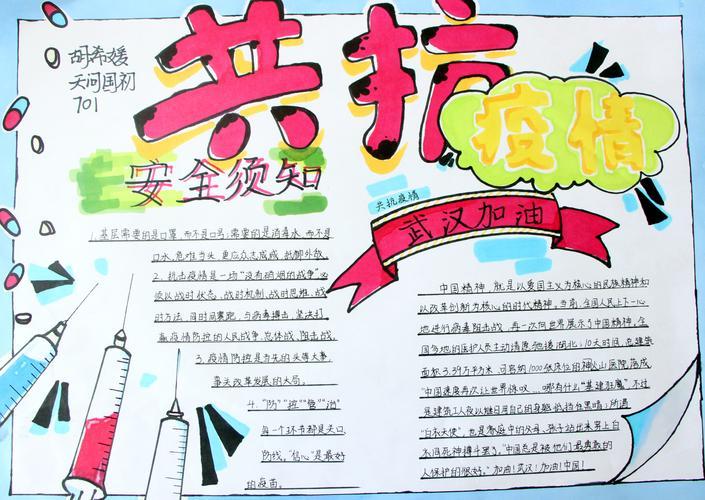 胡希媛
天问国初
701
共抗
疫情
安全须知
共抗疫情
武汉加油
1.基层需要的是口罩,而不是口号;需要的是消毒水,而不是
口水,危难当头,更应众志成城,抵御外敌
2、抗击疫情是一场"没有硝烟的战争"必
须以战时状态、战时机制、战时思维、战
时方法,同时间赛跑,与病毒搏击,坚决打
赢疫情防控的人民战争、总体战、阻击战,
3.疫情防控是当先的头等大事,
事关改革发展的大局。
4."防""控""管""治"
每一个环节都是关口,
防线,"信心"是最好
的疫苗。
中国精神,就是以爱国主义为核心的民族精神和
以改革创新为核心的时代精神。当前,全国人民上下一心
地进行病毒阻击战,再一次向世界展示了中国精神。全
国多地的医护人员主动请愿驰援湖北;10天时间,总建筑
面积3.39万平方米,可容纳1000张床位的火山医院落成,
"中国速度再次让世界惊叹……哪有什么"基建狂魔"不过
是建筑工人夜以继日用自己的身躯抵挡住黑暗;所谓
"白衣天使",也是家庭中的父母、孩子站出来穿上白
衣同死神搏斗罢了。"中国总是被他们最勇敢的
人保护的很好。"加油!武汉!加油!中国!